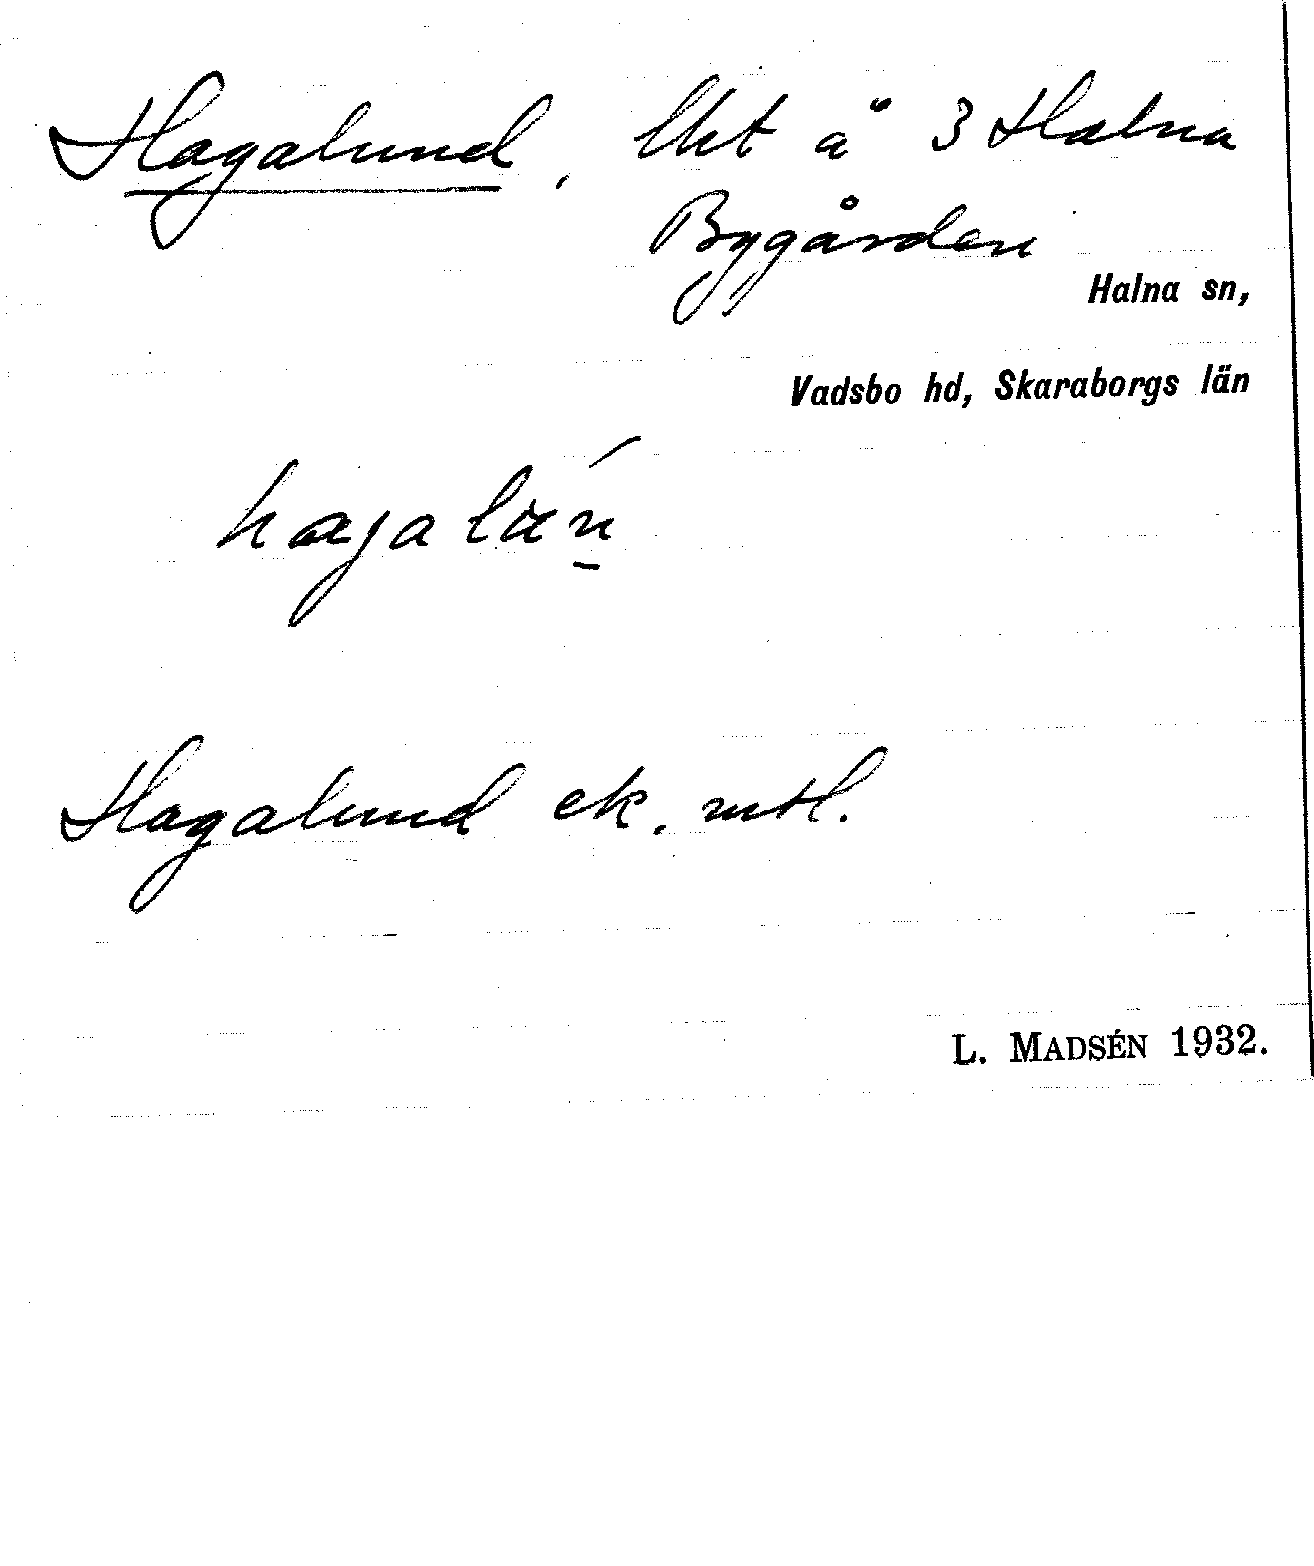 Hagalund, lht å 3 Halna
Bygården
Halna sn,
Vadsbo hd, Skaraborgs län
Hagalund ek. mtl.
L. MADSÉN 1932.